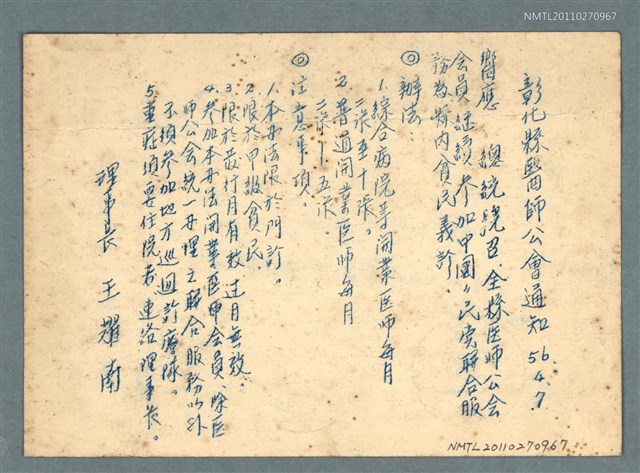 NMTL20110270967
彰化縣醫師公會通知 56.4.7.
響應 總統號召.全縣医師公会
会員継續参加中國々民党联合服
務為縣内貧民義診.
◎辦法:
1.綜合病院等開業医師每月
二张至十张。
2.普通開業医師每月
二张—五张.
◎注意事項.
1.本办法限於門診.
2.限於甲級貧民.
3.限於发行月有效过月無效.
4.参加本办法開業医師会員、除医
師公会統一办理之联合服務以外
不須参加地方巡迴診療隊。
5.重症須要住院者連洛理事長。
理事長 王耀南
NMTL20110270967